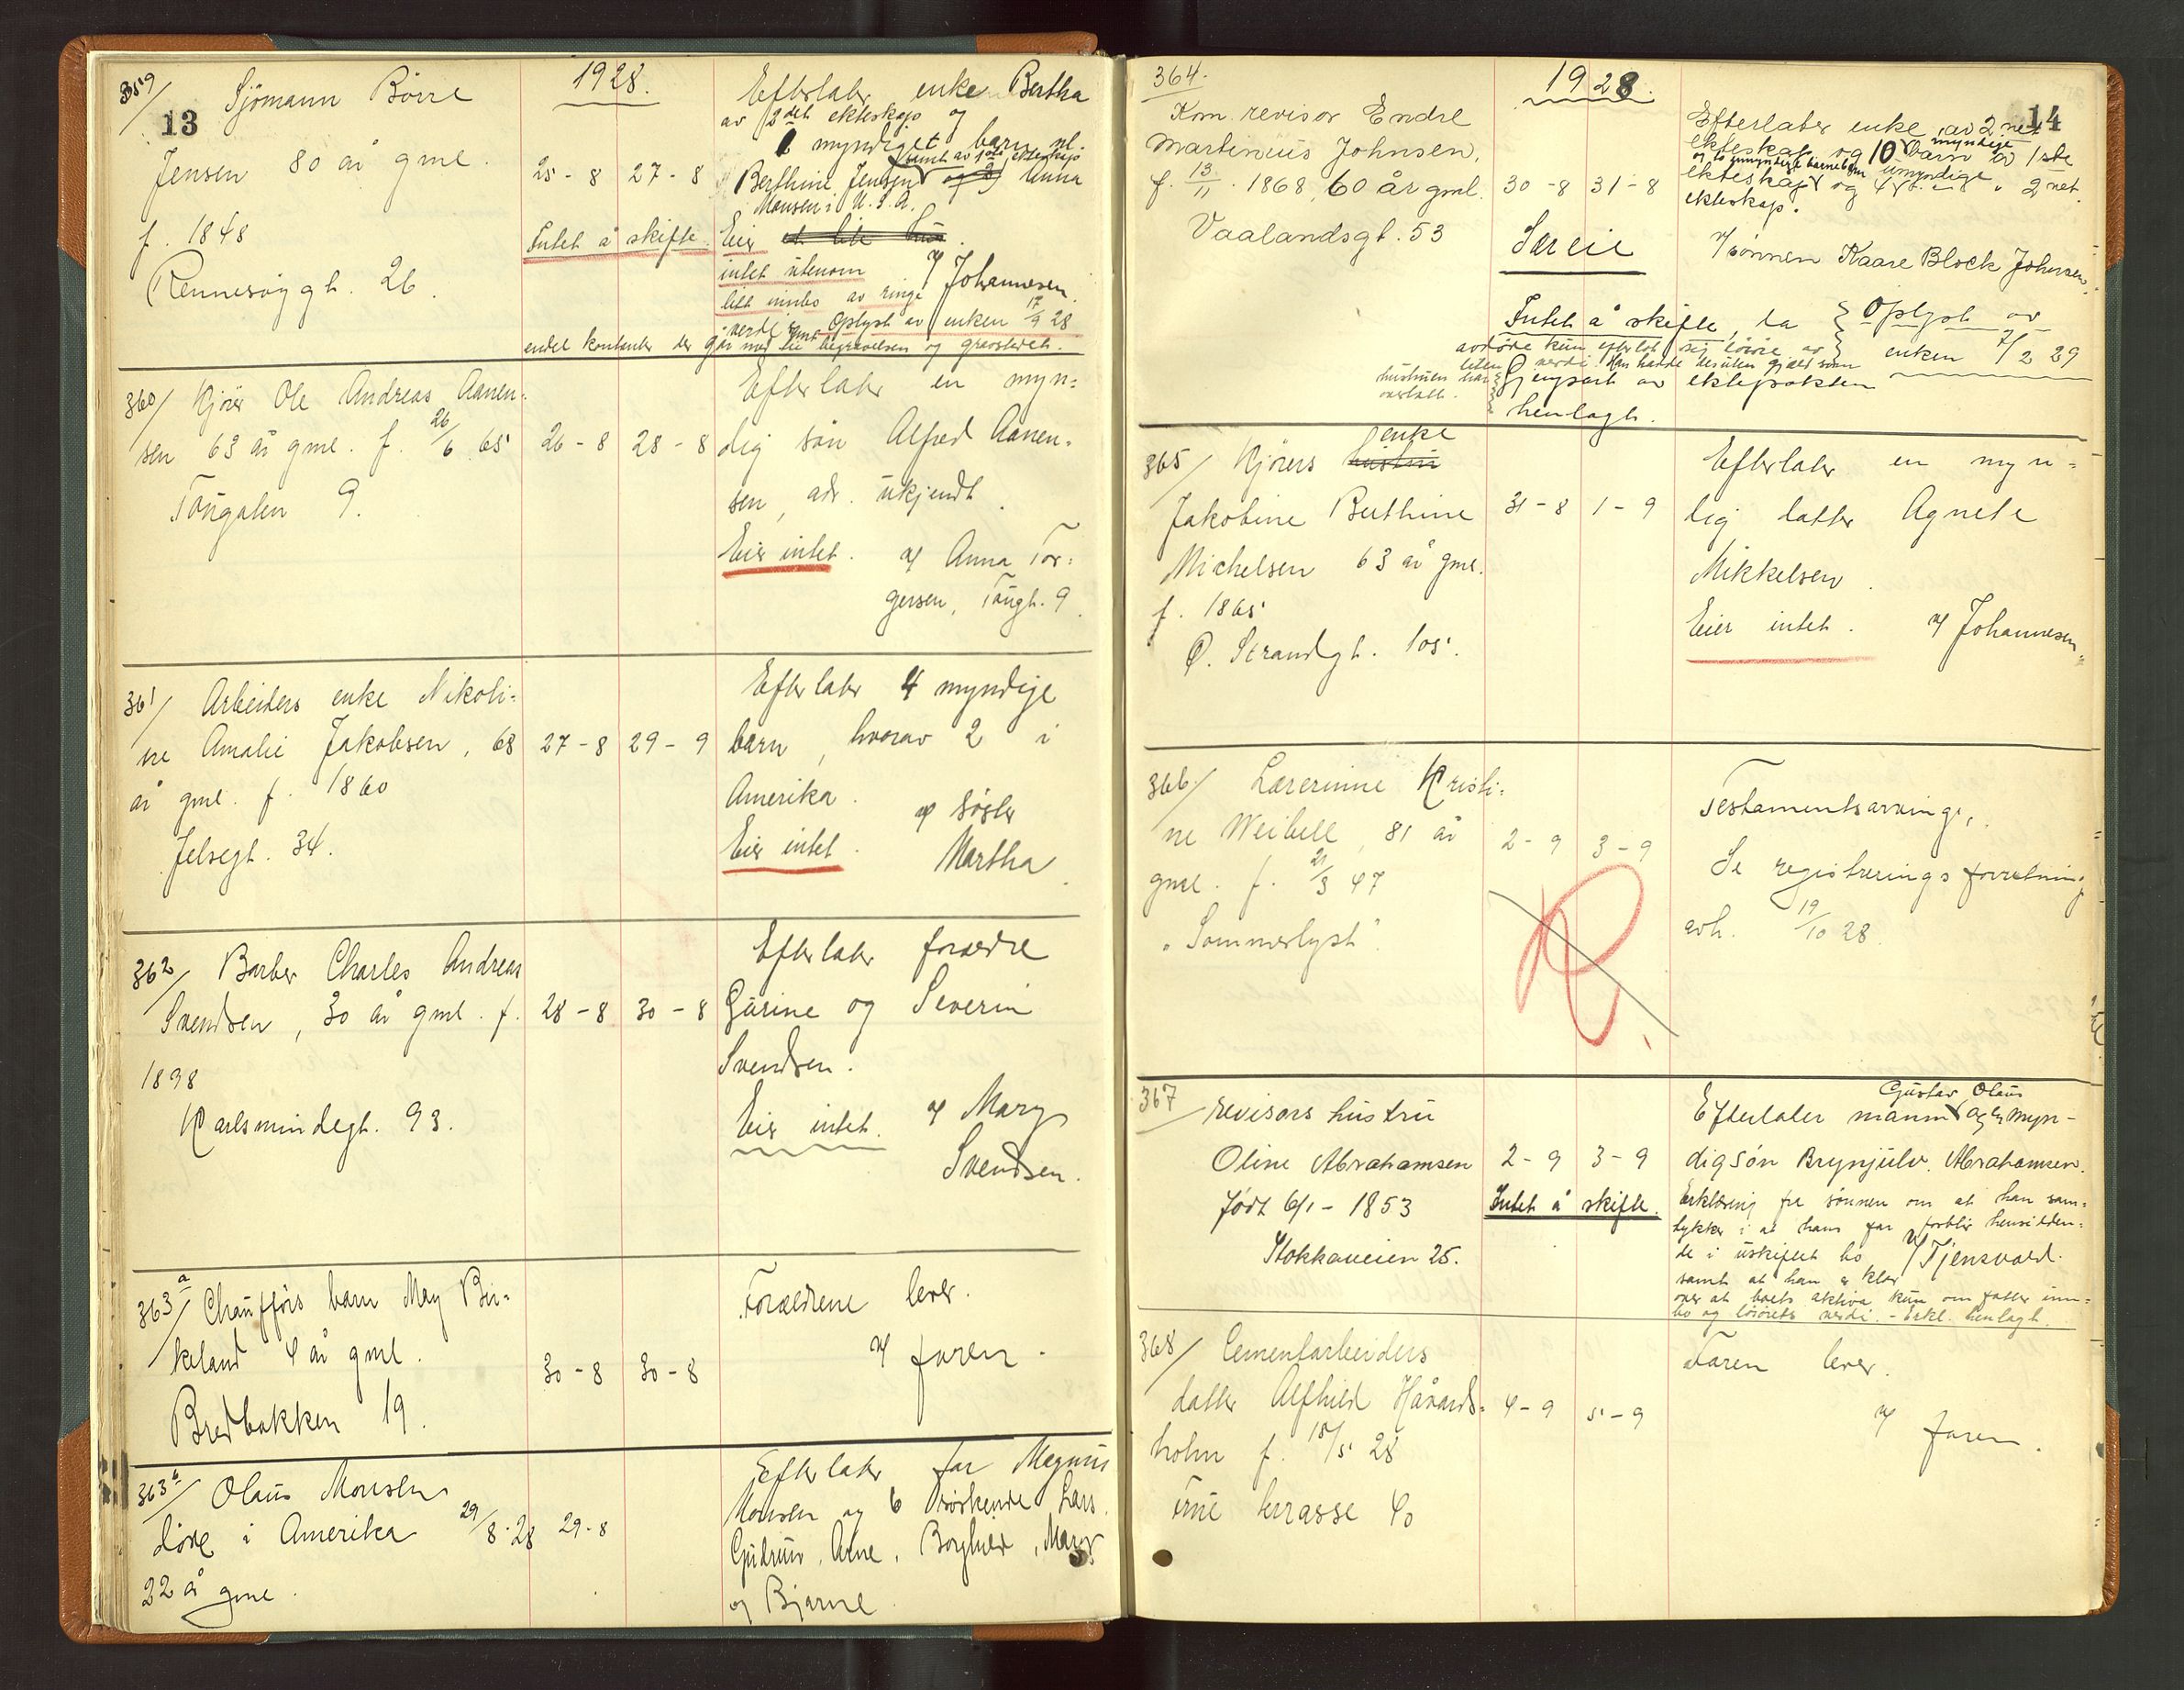 13
1928.
359/ Sjömann Börre
Jensen 80 år gml.
f. 1848
Rennesöygt. 26.
25-8 27-8
Intet å skifte.
Efterlater enke Bertha
av 2det ekteskap og
myndiget barn nl.
Berthine Jensen samt av 1ste ekteskap Anna
Monsen i U.S.A.
Eier et lite hus.
intet utenom
litt innbo av ringe
verdi Oplyst av enken 17/9 28
v/ Johannesen.
endel kontanter der går med til begravelsen og gravstedet.
360/ Kjörer Ole Andreas Aanen-
sen 63 år gml. f. 26/6 65
Tougaten 9.
26-8 28-8
Efterlater en myn-
dig sön Alfred Aanen-
sen, adr. ukjendt.
Eier intet. v/ Anna Tor-
gersen, Tougt. 9.
361/ Arbeiders enke Nikoli-
ne Amalie Jakobsen, 68
år gml. f. 1860
Jelsegt. 34.
27-8 29-9
Efterlater 4 myndige
barn, hvorav 2 i
Amerika.
v/ söster
Eier intet. Martha.
362/ Barber Charles Andreas
Svendsen, 30 år gml. f.
1898
Karlsmindegt. 93.
28-8 30-8
Efterlater forældre
Gurine og Severin
Svendsen.
Eier intet. v/ Mary
Svendsen.
363a/ Chaufförs barn May Bir-
keland 4 år gml.
Bredbakken 19.
30-8 30-8
Forældrene lever.
v/ faren.
363b/ Olaus Monsen
döde i Amerika 29/8-28
22 år gml.
29-8
Efterlater far Magnus
Monsen og 6 söskende Lars,
Gudrun, Arne, Borghild, Mary
og Bjarne.
14
1928.
364.
Kom. revisor Endre
Martinius Johnsen,
f. 13/11. 1868, 60 år gml.
Vaalandsgt. 53
30-8 31-8
Særeie
Efterlater enke av 2net
ekteskap og 10 myndige barn av 1ste
og to umyndige barnebarn
ekteskap og 4 umyndige " 2net
ekteskap.
v/ sönnen Kaare Block Johnsen.
Intet å skifte, da
avdöde kun efterlot sig lösöre av
liten verdi. Han hadde desuten gjæld som
hustruen har
overtatt.
Oplyst av
enken 7/2 29
Gjenpart av ektepakten
henlagt.
365/ Kjörers hustru enke
Jakobine Berthine
Michelsen 63 år gml.
f. 1865
Ö. Strandgt. 105.
31-8 1-9
Efterlater en myn-
dig datter Agnete
Mikkelsen.
Eier intet. v/ Johannesen.
366/ Lærerinne Kristi-
ne Weibell, 81 år
gml. f. 21/3 47
"Sommerlyst".
2-9 3-9
R.
Testamentsarving.
Se registreringsforretning
avh. 19/10 28.
367
revisors hustru
Oline Abrahamsen
födt 6/1-1853
Stokkaveien 25.
2-9 3-9
Intet å skifte.
Efterlater mann Gustav Olaus og en myn-
dig sön Brynjulv Abrahamsen.
Erklæring fra sönnen om at han sam-
tykker i at hans far forblir hensidden-
de i uskiftet bo v/ Tjensvold.
samt at han er klar
over at boets aktiva kun omfatter inn-
bo og lösörets verdi. - Erkl. henlagt.
368/ Cementarbeiders
datter Alfhild Håvards-
holm f. 18/5 28
Tine terrasse 40
4-9 5-9
Faren lever.
v/ faren.